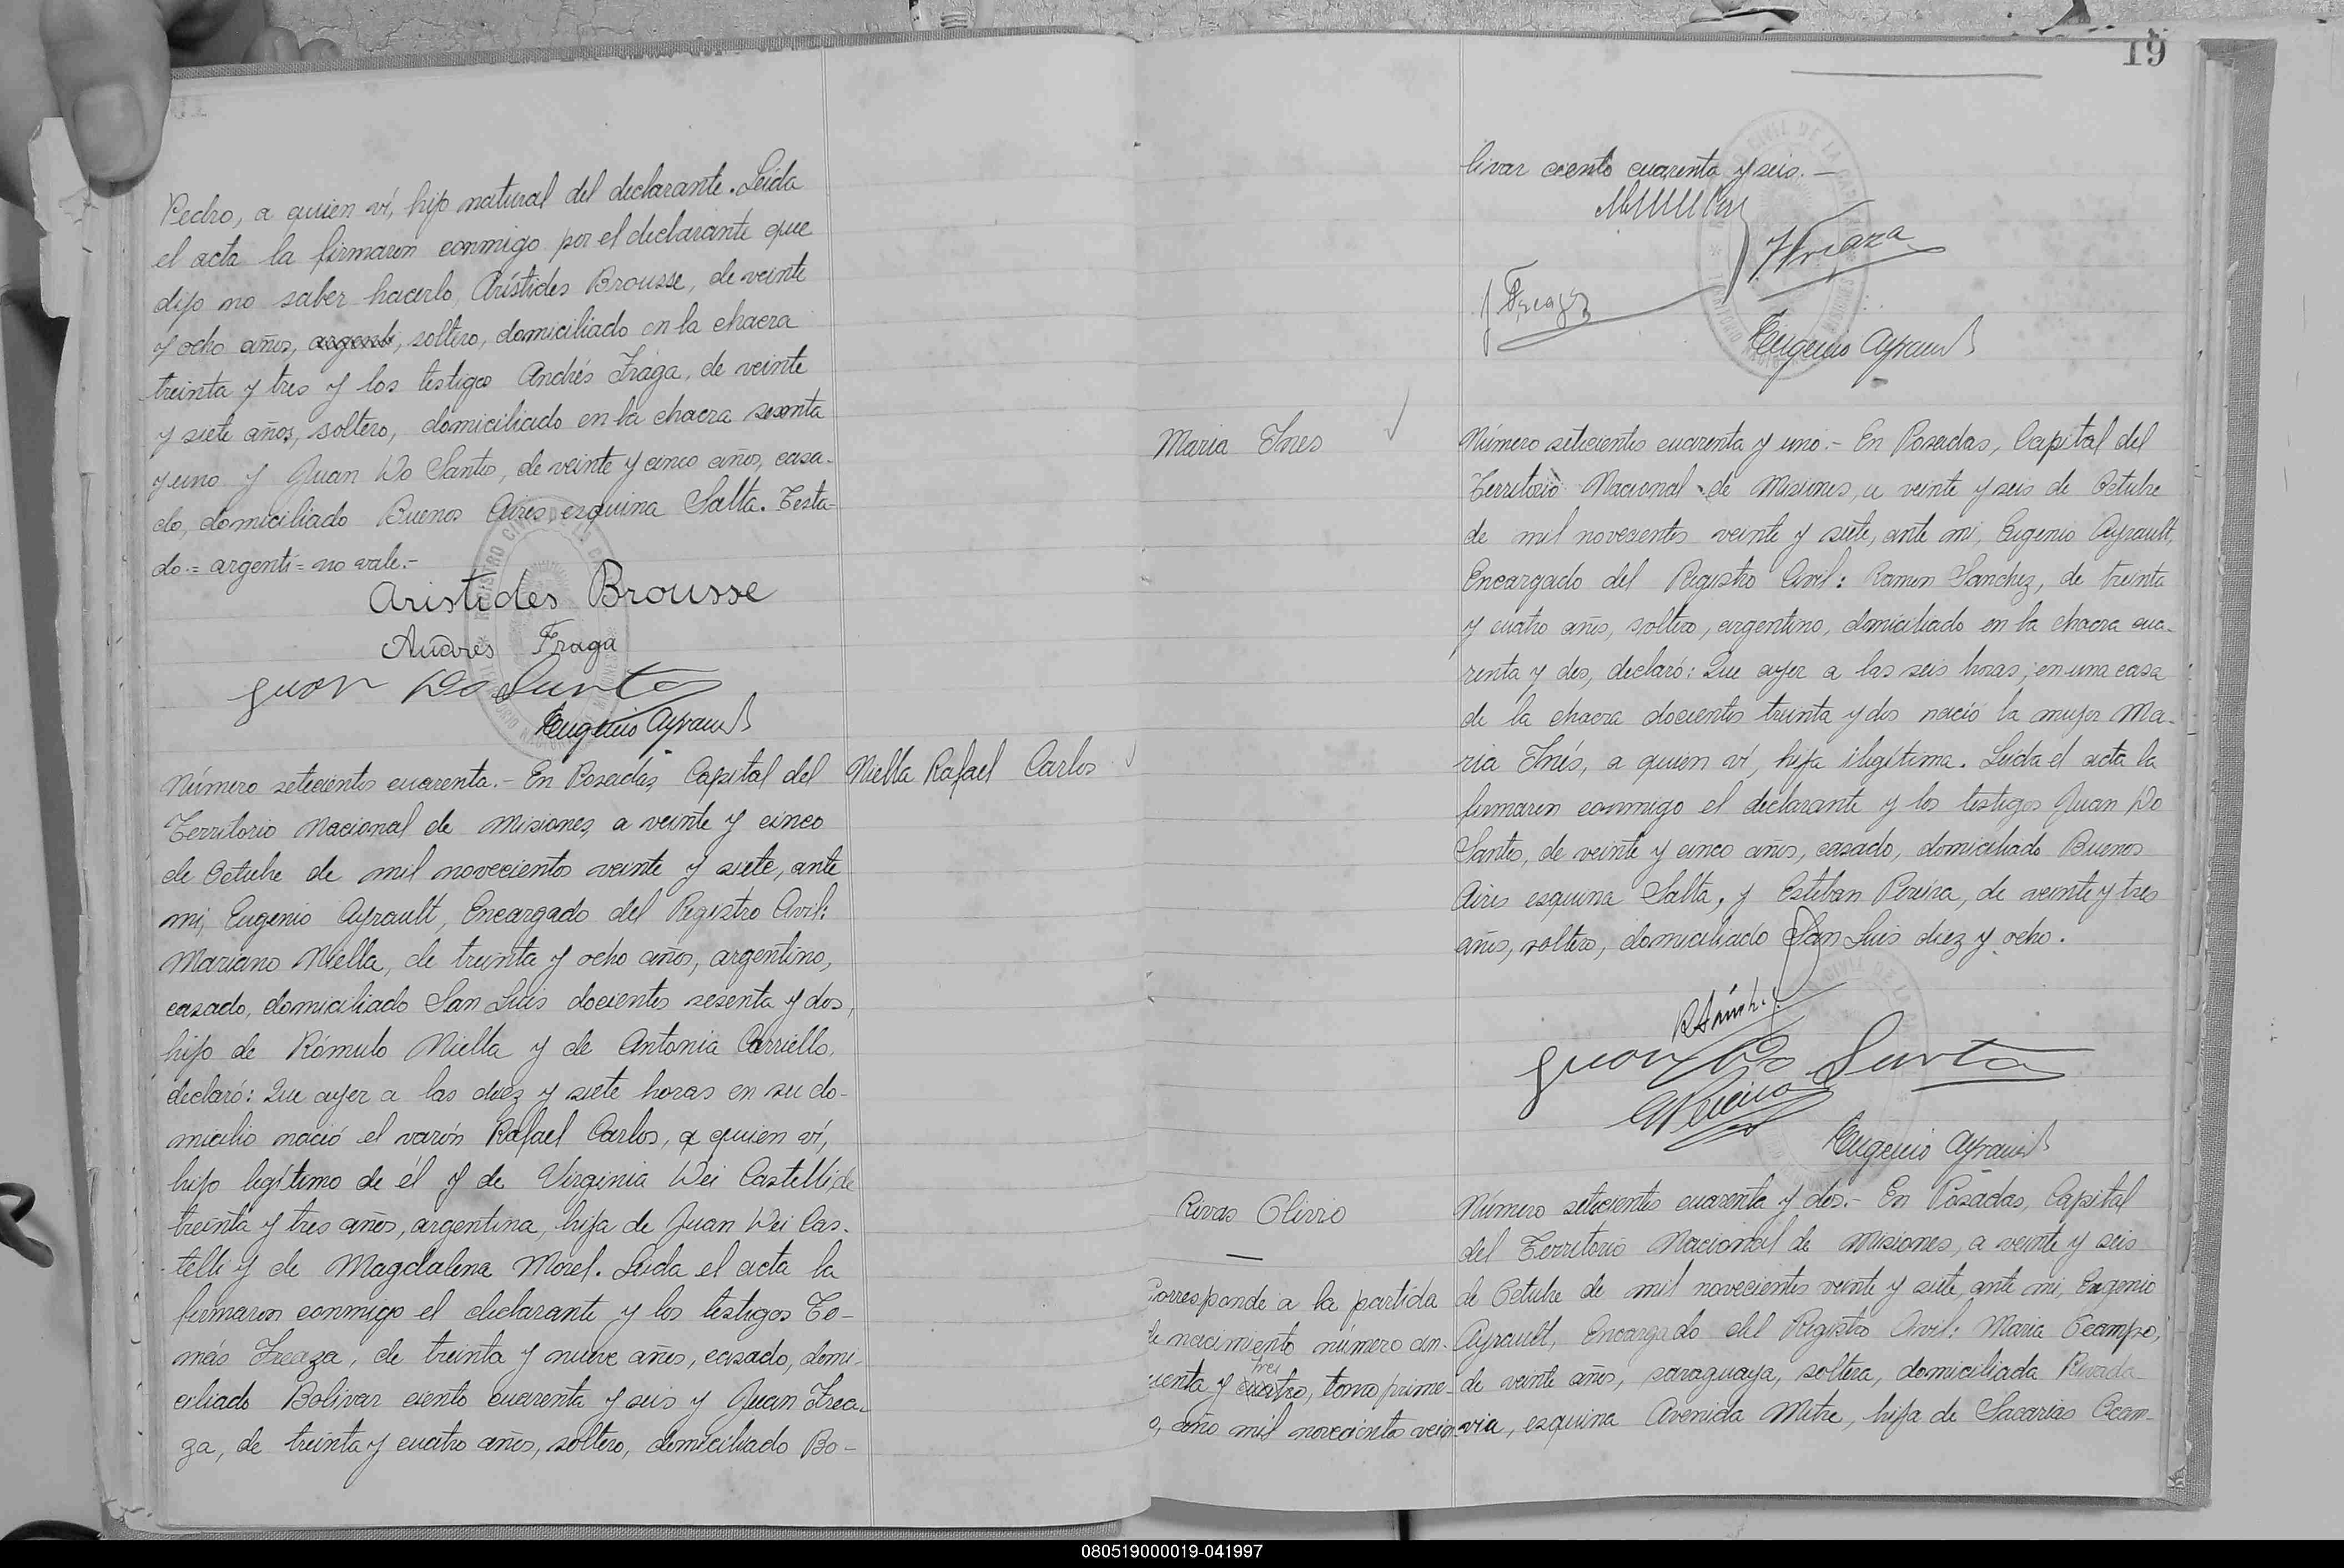 Pedro, a quien ví, hijo natural del declarante. Leída
el acta la firmaron conmigo por el declarante que
dijo no saber hacerlo, Arístides Brousse, de veinte
y ocho años, argenti, soltero, domiciliado en la chacra
treinta y tres y los testigos Andrés Fraga, de veinte
y siete años, soltero, domiciliado en la chacra sesenta
y uno y Juan Do Santos, de veinte y cinco años, casa-
do, domiciliado Buenos Aires, esquina Salta. Testa-
do = argenti = no vale.-
Aristides Brousse
Andres Fraga
Juan Do Santos
Eugenio Ayrault
Número setecientos cuarenta.- En Posadas, Capital del
Territorio Nacional de Misiones, a veinte y cinco
de Octubre de mil novecientos veinte y siete, ante
mi, Eugenio Ayrault, Encargado del Registro Civil:
Mariano Niella, de treinta y ocho años, argentino,
casado, domiciliado San Luis docientos sesenta y dos,
hijo de Rómulo Niella y de Antonia Carriello,
declaró: Que ayer a las diez y siete horas en su do-
micilio nació el varón Rafael Carlos, a quien ví,
hijo legítimo de él y de Virginia Dei Castelli, de
treinta y tres años, argentina, hija de Juan Dei Cas-
telli y de Magdalena Morel. Leída el acta la
firmaron conmigo el declarante y los testigos To-
más Freaza, de treinta y nueve años, casado, domi-
ciliado Bolivar ciento cuarenta y seis y Juan Frea-
za, de treinta y cuatro años, soltero, domiciliado Bo-
Niella Rafael Carlos
19
livar ciento cuarenta y seis.-
TFreaza
J Freaza
Eugenio Ayrault
Maria Ines
Número setecientos cuarenta y uno.- En Posadas, Capital del
Territorio Nacional de Misiones, a veinte y seis de Octubre
de mil novecientos veinte y siete, ante mi, Eugenio Ayrault,
Encargado del Registro Civil: Ramon Sanchez, de treinta
y cuatro años, soltero, argentino, domiciliado en la chacra cua-
renta y dos, declaró: Que ayer a las seis horas, en una casa
de la chacra docientos treinta y dos nació la mujer Ma-
ria Inés, a quien ví, hija ilegítima. Leída el acta la
firmaron conmigo el declarante y los testigos Juan Do
Santos, de veinte y cinco años, casado, domiciliado Buenos
Aires esquina Salta, y Esteban Pereira, de veinte y tres
años, soltero, domiciliado San Luis diez y ocho.
Juan Do Santos
Eugenio Ayrault
Rivas Olivio
Corresponde a la partida
de nacimiento número cin-
cuenta y cuatro, tres tomo prime-
o, año mil novecientos vein
Número setecientos cuarenta y dos.- En Posadas, Capital
del Territorio Nacional de Misiones, a veinte y seis
de Octubre de mil novecientos veinte y siete, ante mi, Eugenio
Ayrault, Encargado del Registro Civil: Maria Ocampo,
de veinte años, paraguaya, soltera, domiciliada Rivada-
via, esquina Avenida Mitre, hija de Sacarias Ocam-
080519000019-041997